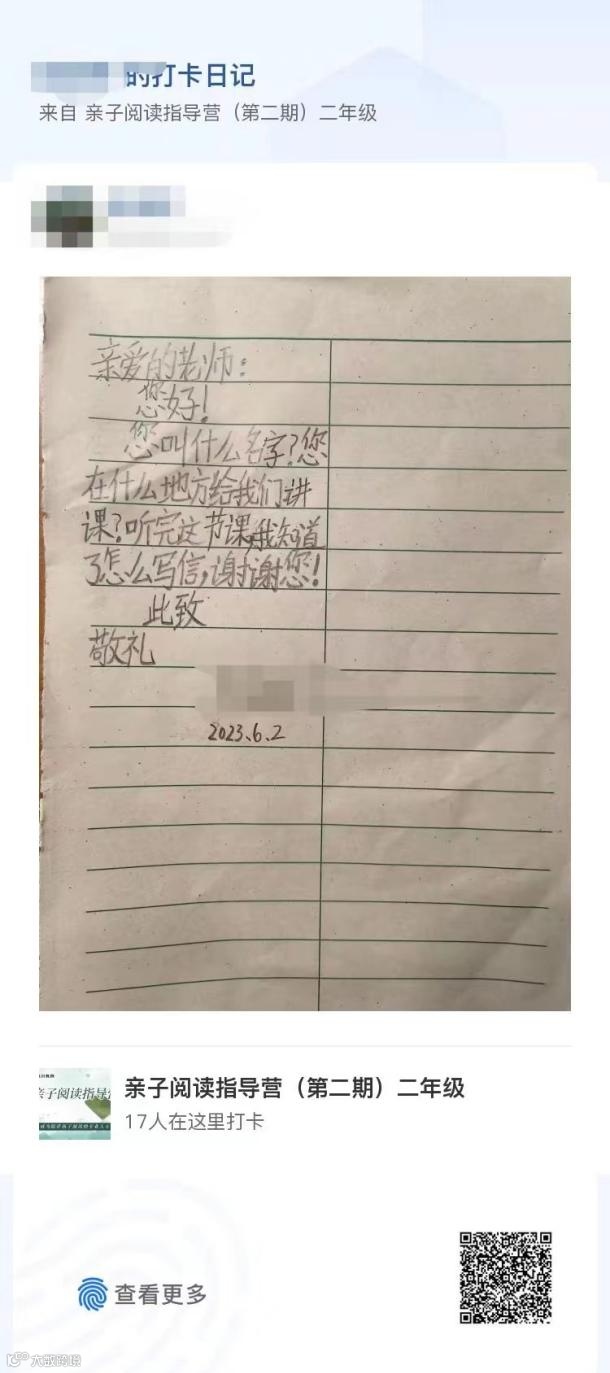 的打卡日记
来自 亲子阅读指导营（第二期）二年级
亲爱的老师：
您好！
您叫什么名字？您
在什么地方给我们讲
课？听完这节课，我知道
了怎么写信，谢谢您！
此致
敬礼
2023.6.2
亲子阅读指导营
亲子阅读指导营（第二期）二年级
17人在这里打卡
查看更多
大数跨境